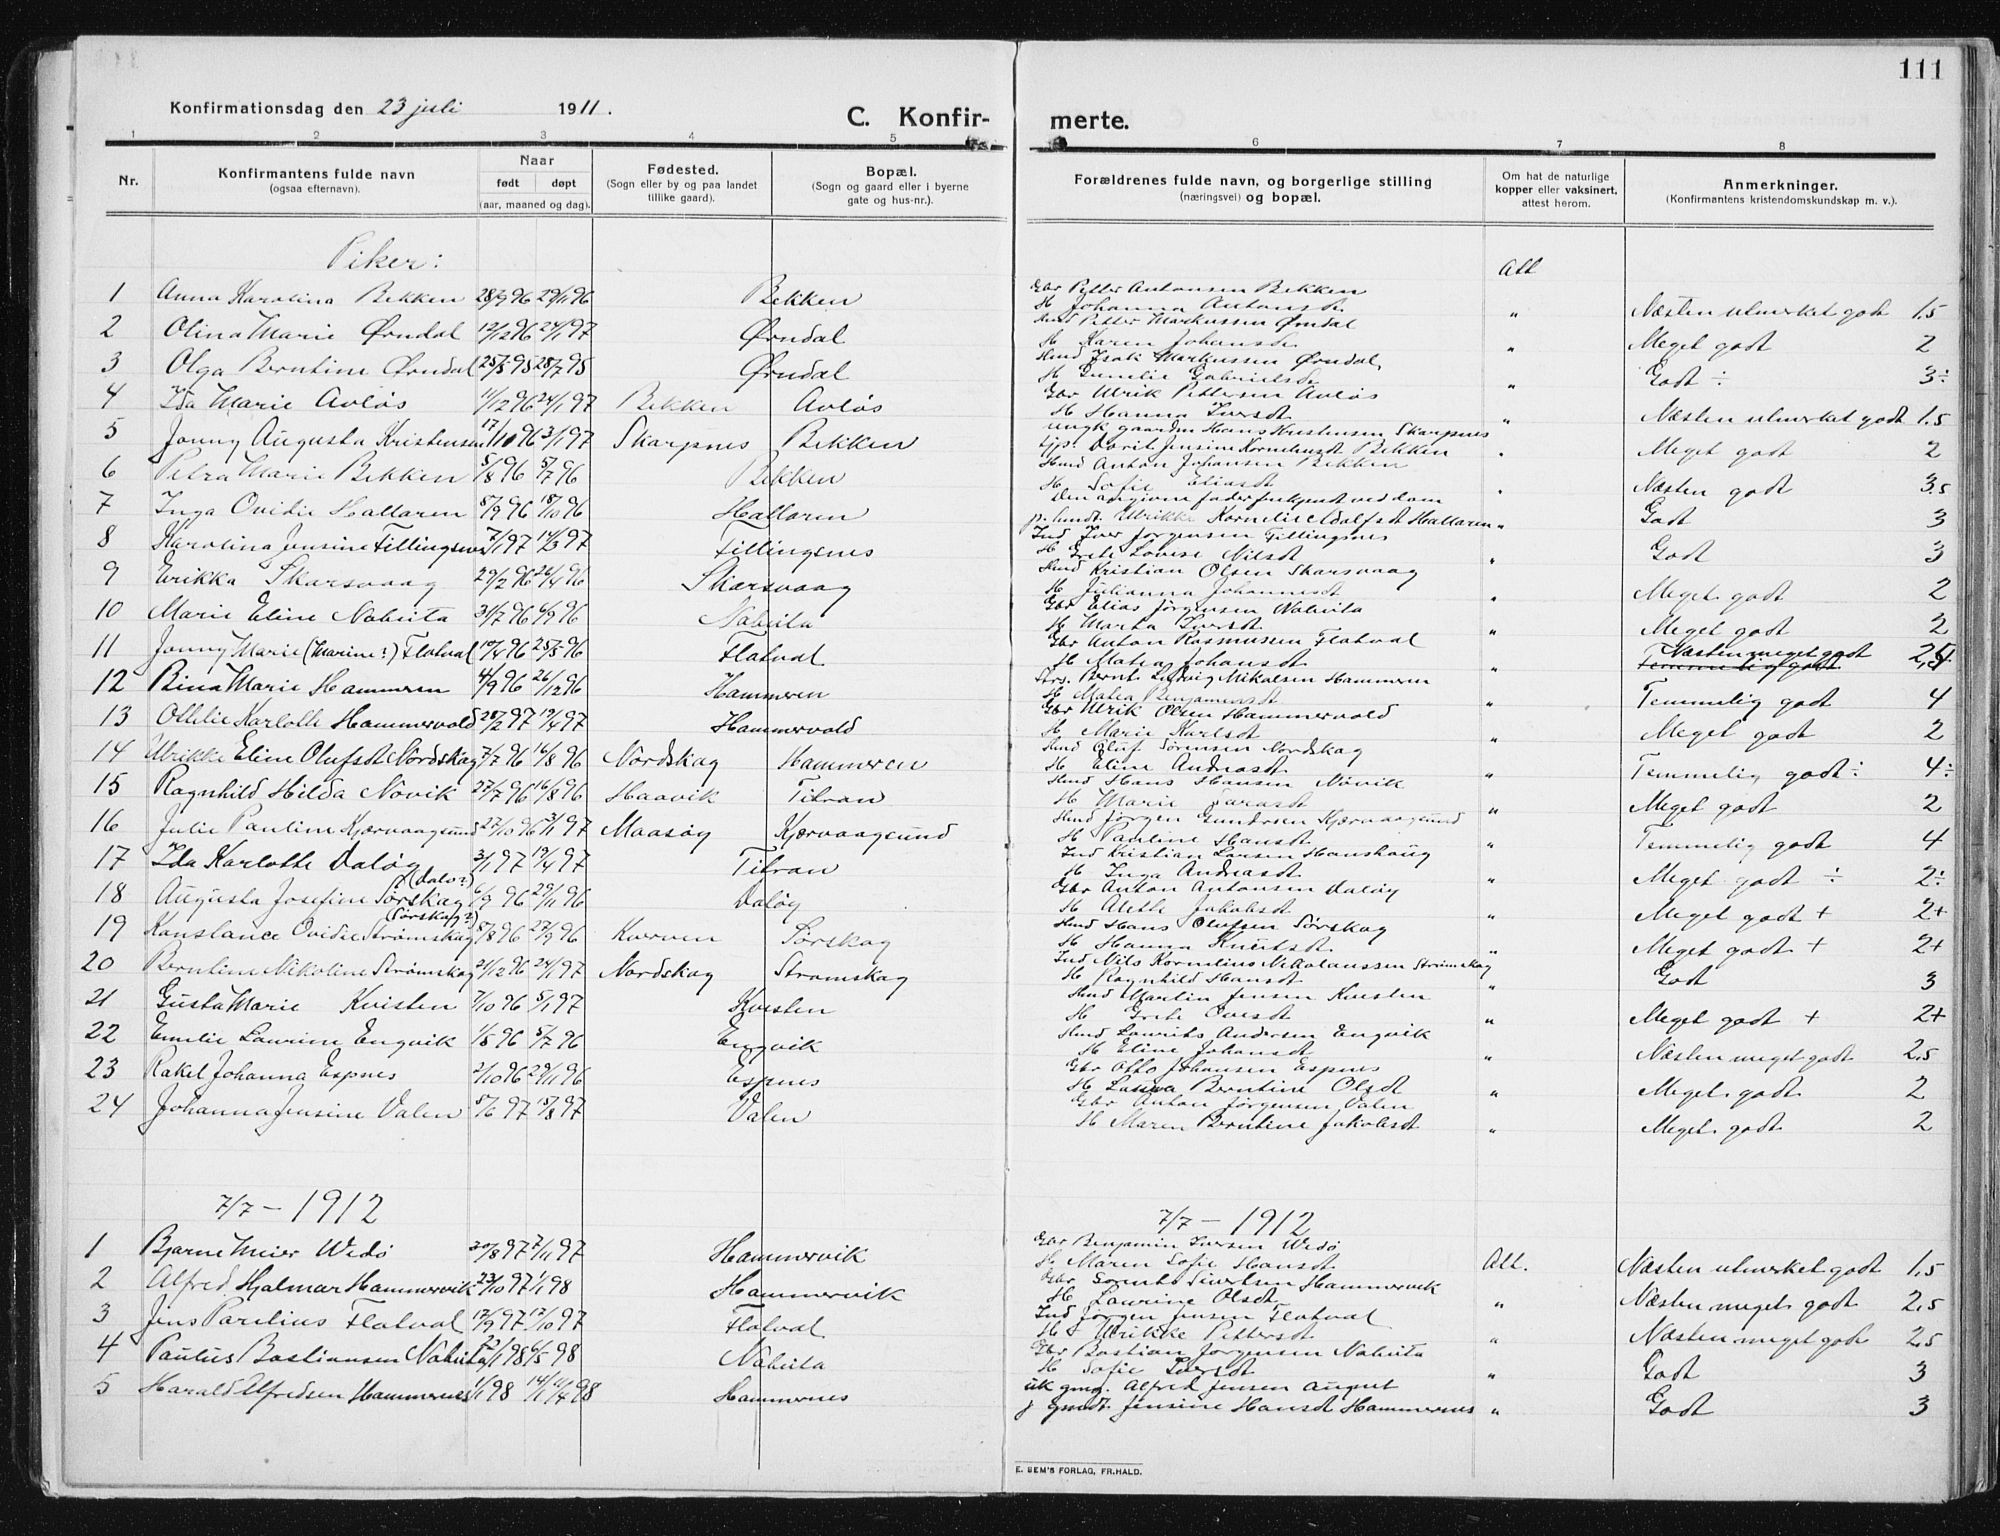 111
Konfirmationsdag den 23 juli 1911.
C. Konfirmerte.
1 2 3 4 5 6 7 8
Nr. Konfirmantens fulde navn (ogsaa efternavn). Naar født døpt (aar, maaned og dag). Fødested. (Sogn eller by og paa landet tillike gaard). Bopæl. (Sogn og gaard eller i byerne gate og hus-nr.). Forældrenes fulde navn, og borgerlige stilling (næringsvei) og bopæl. Om hat de naturlige kopper eller vaksinert, attest herom. Anmerkninger. (Konfirmantens kristendomskundskap m. v.).
Piker:
1 Anna Karolina Bekken 28/9 96 29/11 96 Bekken Gbr Petter Antonsen Bekken H Johanna Antonsdt Att Næsten utmerket godt 1.5
2 Olina Marie Ørndal 12/12 96 24/1 97 Ørndal Hmd Petter Markussen Ørndal H Karen Johansdt " Meget godt 2
3 Olga Berntine Ørndal 25/5 95 28/7 95 Ørndal Hmd Isak Markussen Ørndal H Gabrielsdt " Godt ÷ 3÷
4 Ida Marie Avløs 11/12 96 24/1 97 Bekken Avløs Gbr Ulrik Pettersen Avløs H Hanna Iversdt " Næsten utmerket godt 1.5
5 Jonny Augusta Kristensen 17/10 96 3/1 97 Skarpnes Bekken ungk gaardm Hans Kristensen Skarpnes Dorit Jensine Korneliusdt Bekken " Meget godt 2
6 Petra Marie Bekken 5/7 96 Bekken Hmd Anton Johansen Bekken H Sofie Eliasdt " Næsten godt 3.5
7 Inga Ovidie Hallaren 5/9 96 18/10 96 Hallaren Den angivne fader frikjendt ved dom Ulrikke Kornelie Adolfsdt Hallaren " Godt 3
8 Karolina Jensine Fillingsnes 7/1 97 14/3 97 Fillingsnes Ind Iver Jørgensen Fillingsnes H Grete Lovise Nilsdt " Godt 3
9 Erikka Skarsvaag 29/2 96 26/4 96 Skarsvaag Hmd Kristian Olsen Skarsvaag H Julianna Johannesdt " Meget godt 2
10 Marie Eline Nabeita 31/7 96 6/9 96 Nabeita Gbr Elias Jørgensen Nabeita H Marta Iversdt " Meget godt 2
11 Jonny Marie (Marine?) Flatval 10/4 96 25/5 96 Flatval Gbr Anton Rasmussen Flatval H Matea Johansdt " Næsten meget godt 2,5
12 Bina Marie Hammeren 4/9 96 26/12 96 Hammeren Bernt Ludvig Mikalsen Hammeren H Matea Benjaminsdt " Temmelig godt 4
13 Ottelie Karlotte Hammervold 28/2 97 19/4 97 Hammervold Gbr Ulrik Olsen Hammervold H Marie Karlsdt " Meget godt 2
14 Ulrikke Eline Olufsdt Nordskag 7/7 96 16/8 96 Nordskag Hammeren Hmd Oluf Sørensen Nordskag H Eline Andreasdt " Temmelig godt ÷ 4÷
15 Ragnhild Hilda Növik 27/7 96 16/8 96 Haavik Titran Hmd Hans Hansen Növik H Marie Larasdt " Meget godt 2
16 Julie Pauline Kjærvaagsund 27/10 96 3/1 97 Maasøy Kjærvaagsund Hmd Jørgen Gundersen Kjærvaagsund H Pauline Hansdt " Temmelig godt 4
17 Ida Karlotte Daløy 3/1 97 19/4 97 Titran Ind Kristian Larsen Hanshaug H Inga Andreasdt " Meget godt ÷ 2÷
18 Augusta Josefine Sørskag (Daløy?) 6/9 96 29/11 96 Daløy Gbr Anton Antonsen Daløy H Alette Jakobsdt " Meget godt + 2+
19 Konstance Ovidie Strömskag (Sørskag?) 5/8 96 27/9 96 Kverven Sørskag Hmd Hans Olufsen Sørskag H Hanna Knutsdt " Meget godt + 2+
20 Berntine Nikoline Strömskag 21/12 96 24/1 97 Nordskag Strømskag Ind Nils Kornelius Nikolaussen Strømskag H Ragnhild Hansdt " Godt 3
21 Gusta Marie Kvisten 7/10 96 5/1 97 Kvisten Hmd Martin Jensen Kvisten H Grete Ovesdt " Meget godt + 2+
22 Emelie Laurine Engvik 1/5 96 5/7 96 Engvik Hmd Laurits Andersen Engvik H Eline Johansdt " Næsten meget godt 2,5
23 Rakel Johanna Espnes 2/10 96 29/11 96 Espnes Gbr Otto Johansen Espnes H Laura Berntine Olsdt " Meget godt 2
24 Johanna Jensine Valen 5/6 97 15/8 97 Valen Gbr Anton Jørgensen Valen H Maren Berntine Jakobsdt " Meget godt 2
7/7 – 1912 7/7 – 1912
1 Bjarne Meier Wedø 30/8 97 7/11 97 Hammervik Gbr Benjamin Iversen Wedø H. Maren Sofie Hansdt Att. Næsten utmerket godt 1,5
2 Alfred Hjalmar Hammervik 23/10 97 1/1 98 Hammervik Gbr Sornt Sivertsen Hammervik H Laurine Olsdt " Næsten meget godt 2,5
3 Jens Parelius Flatval 12/9 97 17/10 97 Flatval Ind Jørgen Jensen Flatval H Ulrikke Pettersdt " Næsten meget godt 2,5
4 Paulus Bastiansen Nabeita 23/1 98 6/5 98 Nabeita Gbr Bastian Jørgensen Nabeita H Sofie Iversdt " Godt 3
5 Harald Alfredsen Hammernes 1/1 98 11/4 98 Hammernes uk gmg. Alfred Jensen August p gmdt. Jensine Hansdt Hammernes " Godt 3
E. SEM'S FORLAG, FR.HALD.